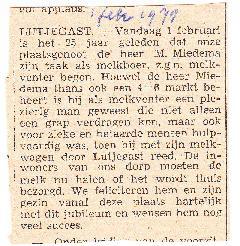 vol applaus.
febr 1979
LUTJEGAST. — Vandaag 1 februari
is het 25 jaar geleden dat onze
plaatsgenoot de heer M. Miedema
zijn taak als melkboer, z.g.n. melk-
venter begon. Hoewel de heer Mie-
dema thans ook een 4=6 markt be-
heert is hij als melkventer een ple-
zierig man geweest die niet alleen
een grap verdragen kon, maar ook
voor zieke en bejaarde mensen hulp-
vaardig was, toen hij met zijn melk-
wagen door Lutjegast reed. De in-
woners van ons dorp moeten de
melk nu halen of het wordt thuis
bezorgd. We feliciteren hem en zijn
gezin vanaf deze plaats hartelijk
met dit jubileum en wensen hem nog
veel succes.